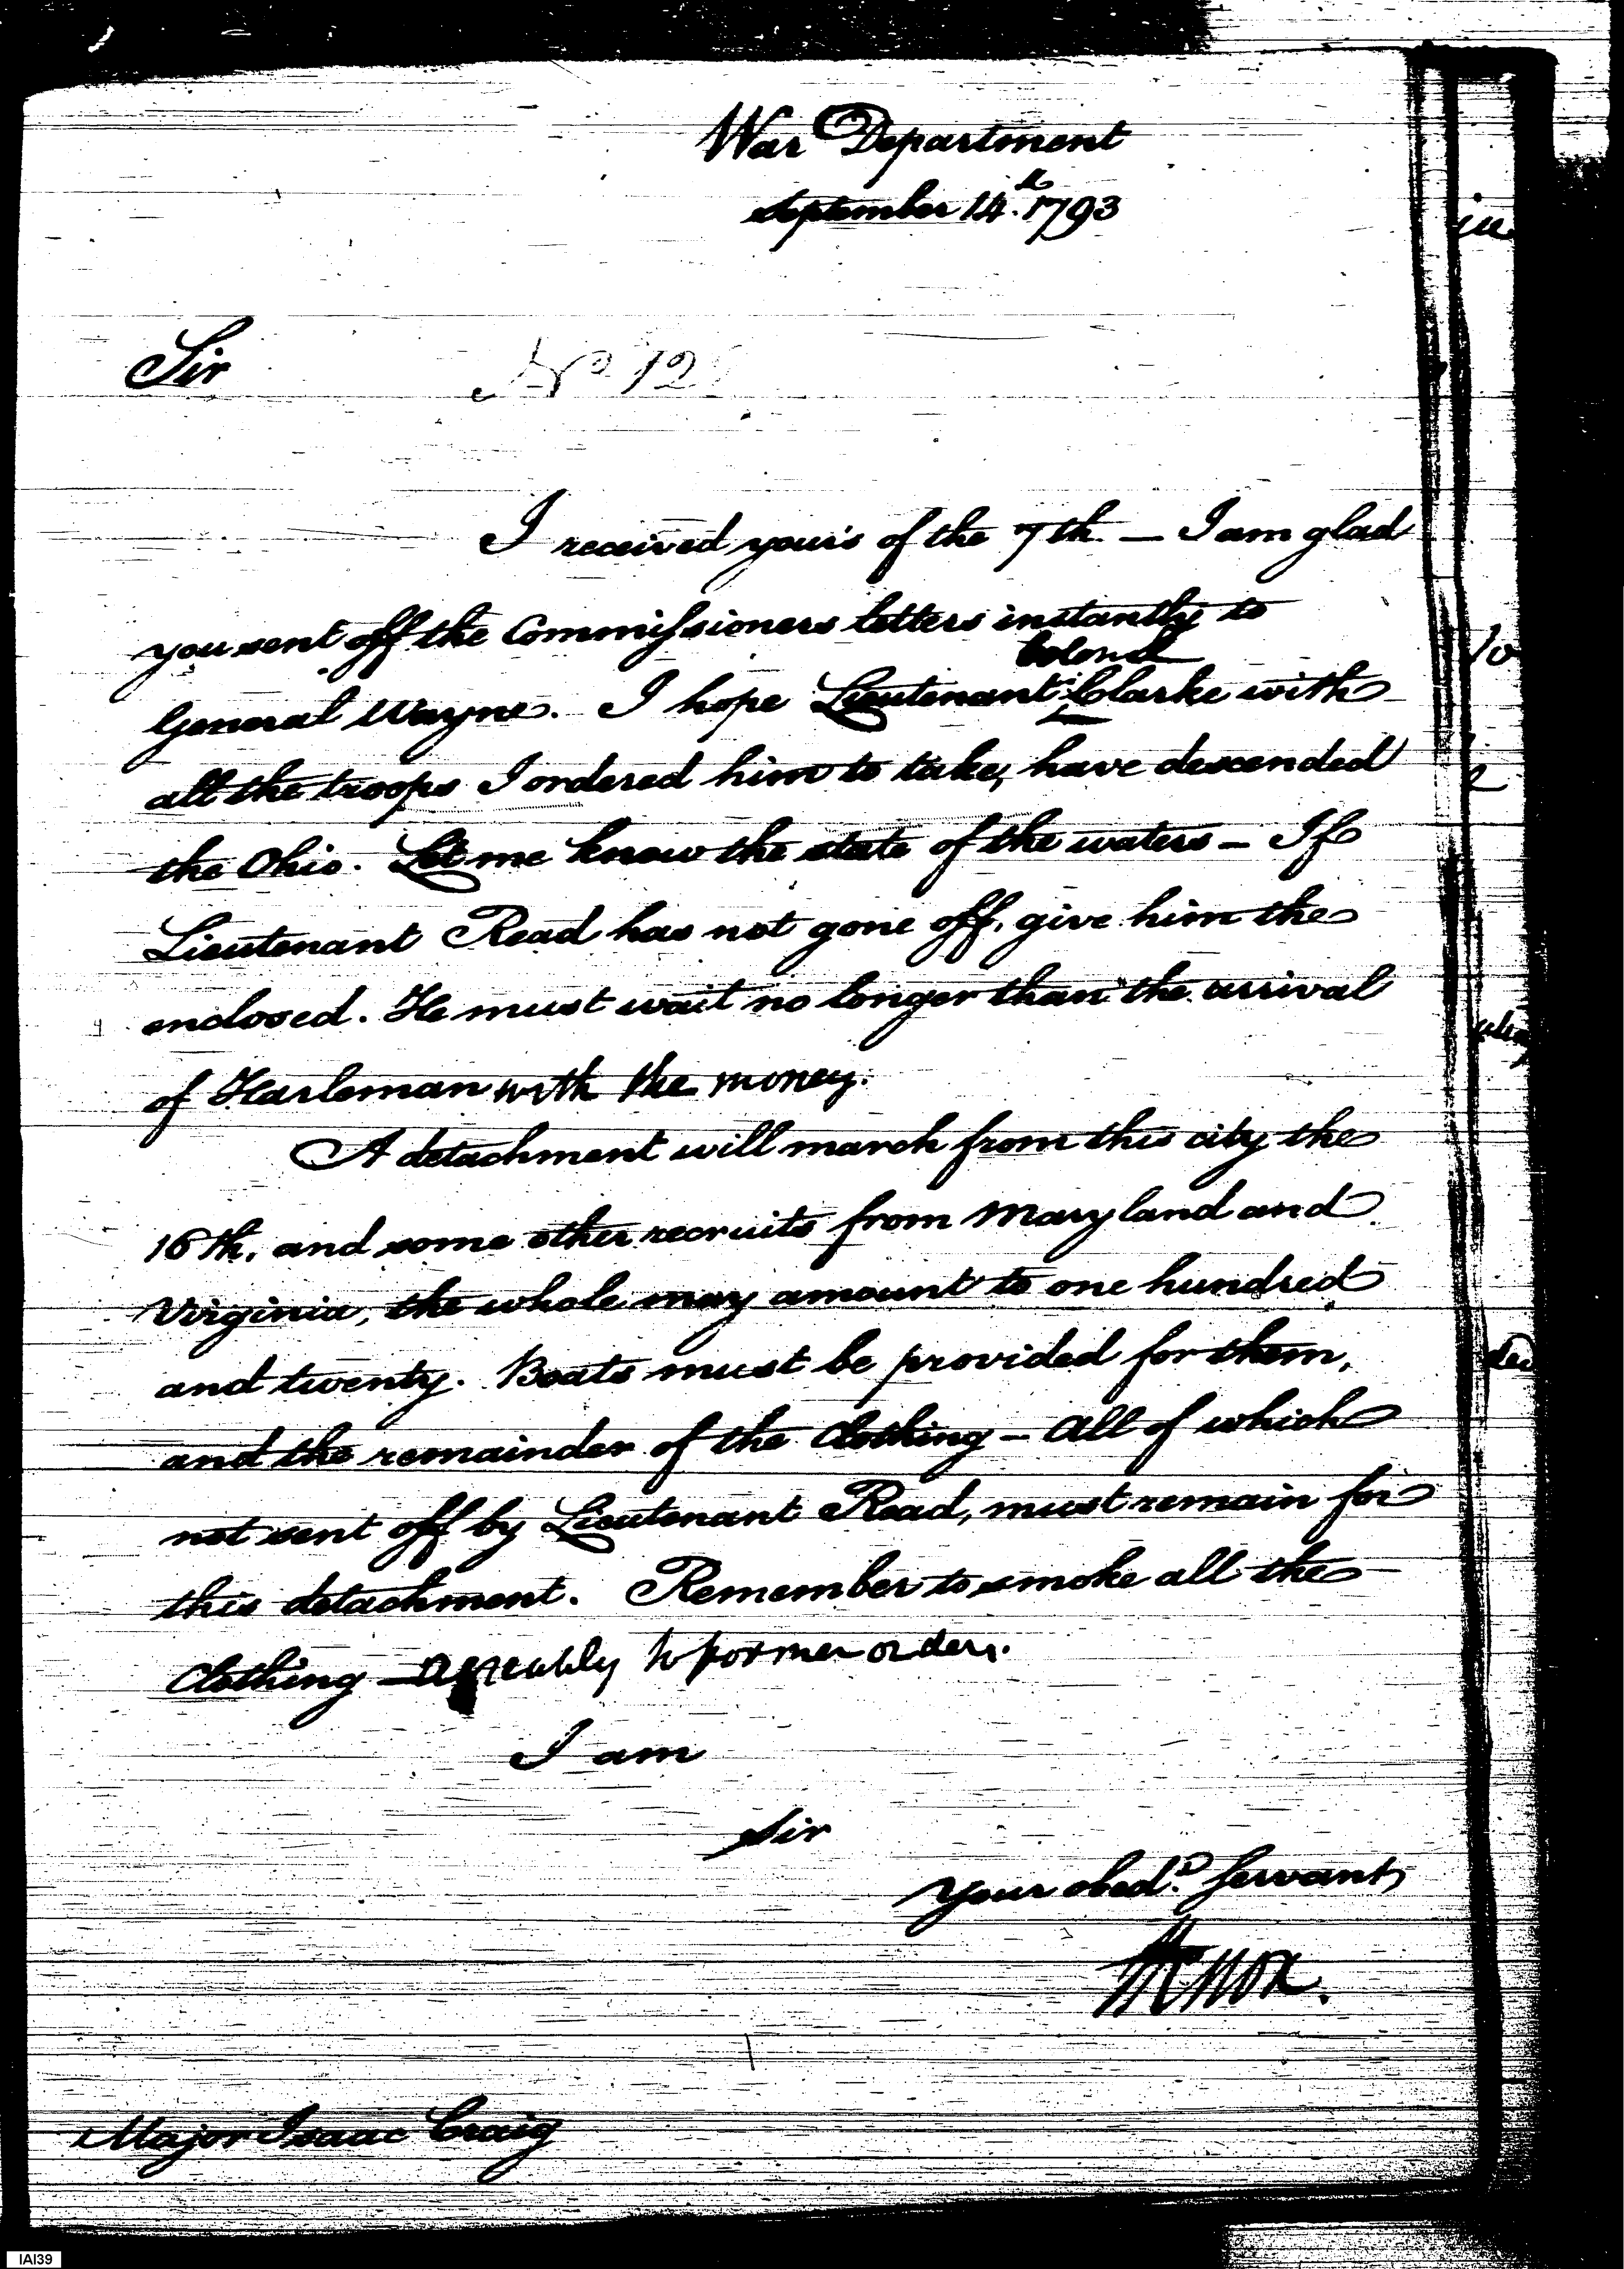 War Department
September 14.th 1793
Sir
No 12
I received your's of the 7th. — I am glad
you sent off the Commissioners letters instantly to
Colonel
General Wayne. I hope Lieutenant Clarke with
all the troops I ordered him to take, have descended
the Ohio. Let me know the state of the waters — If
Lieutenant Read has not gone off, give him the
enclosed. He must wait no longer than the arrival
of Harleman with the money.
A detachment will march from this city the
16th, and some other recruits from Maryland and
Virginia, the whole may amount to one hundred
and twenty. Boats must be provided for them,
and the remainder of the Clothing — All of which
not sent off by Lieutenant Read, must remain for
this detachment. Remember to smoke all the
Clothing — agreeably to former orders.
I am
Sir
Your obed.t Servant,
HKnox.
Major Isaac Craig
IAI39